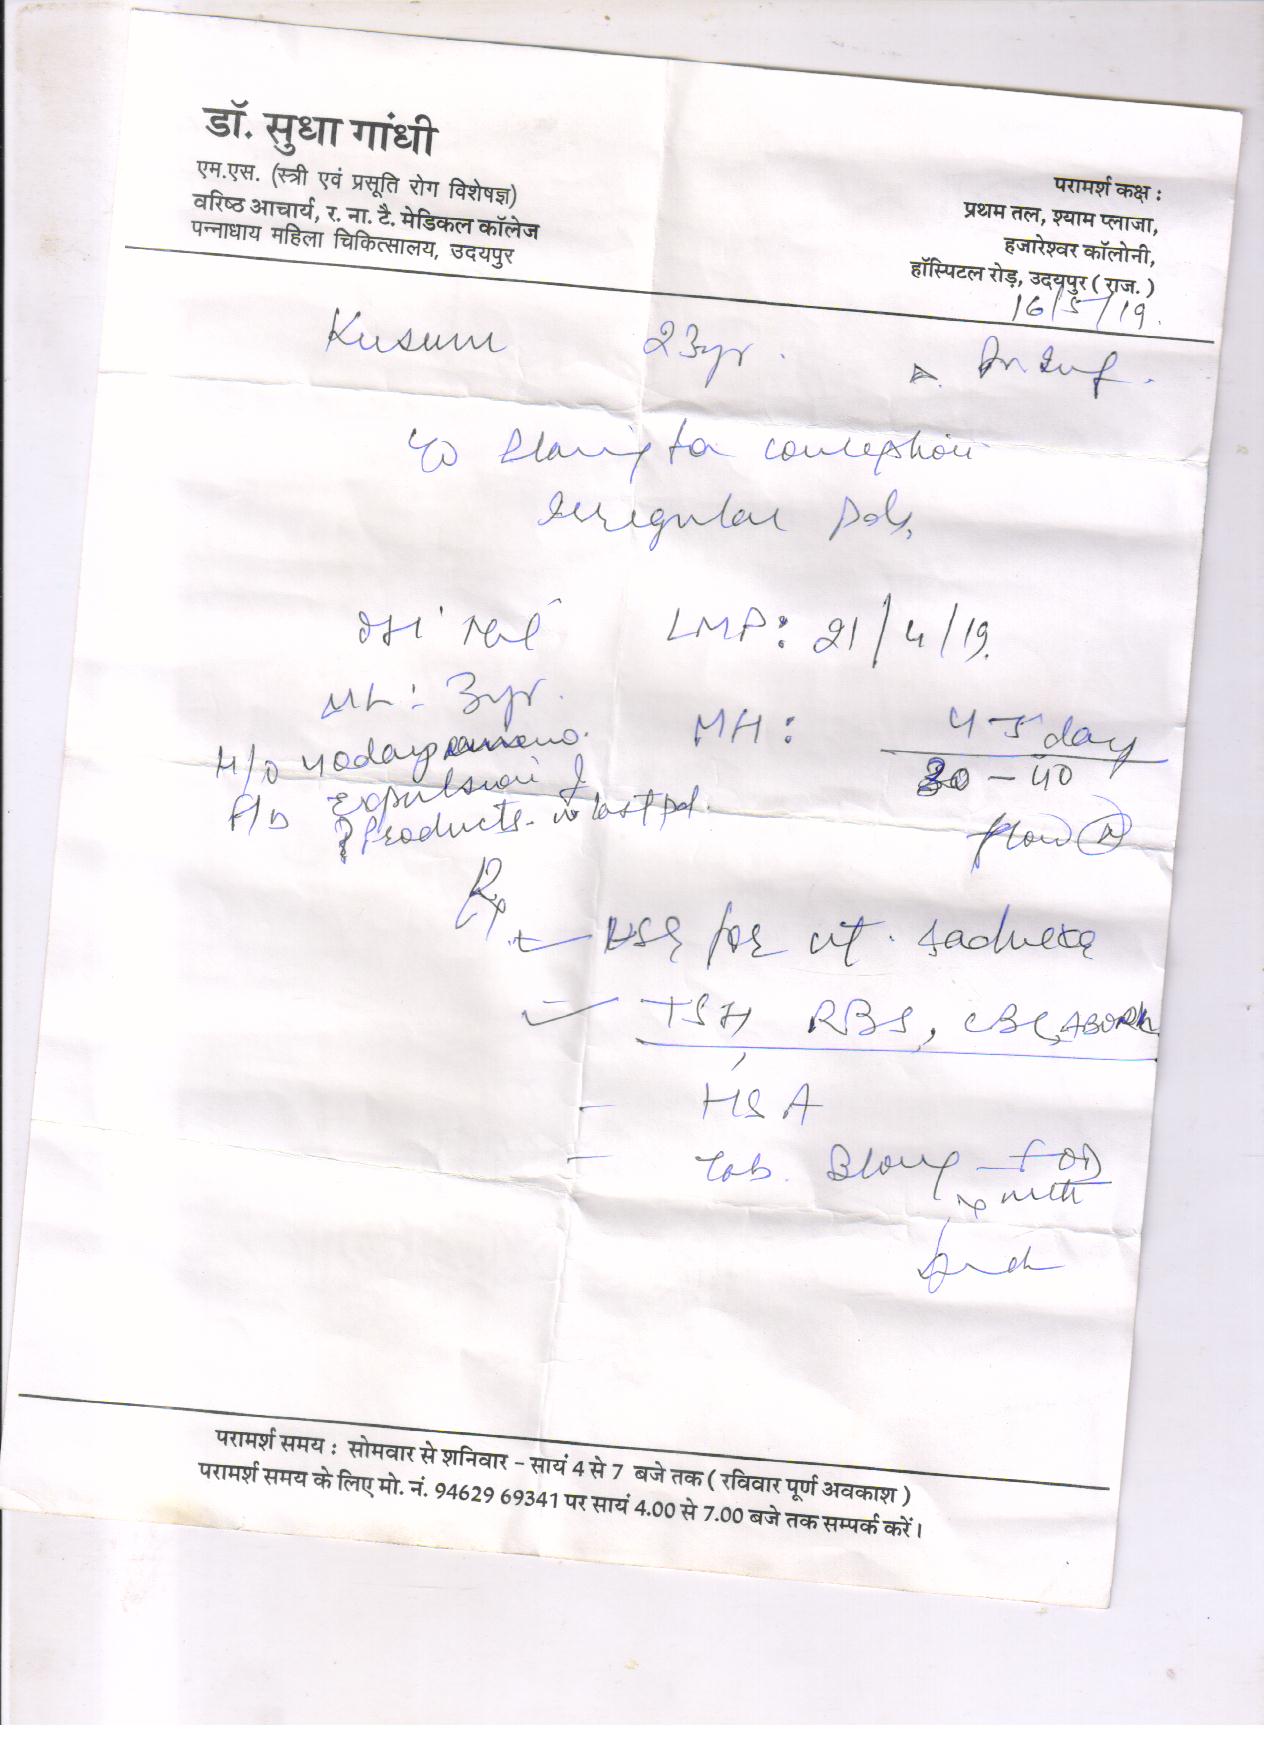 डॉ. सुधा गांधी
एम.एस. (स्त्री एवं प्रसूति रोग विशेषज्ञ)
वरिष्ठ आचार्य, र. ना. टै. मेडिकल कॉलेज
पन्नाधाय महिला चिकित्सालय, उदयपुर
परामर्श कक्ष :
प्रथम तल, श्याम प्लाजा,
हजारेश्वर कॉलोनी,
हॉस्पिटल रोड़, उदयपुर ( राज. )
16/5/19.
Kusum 23yr.
for conception
irregular pds.
LMP: 21/4/19.
ML: 3yr.
MH: 4-5 day
30-40
flow (N)
H/O
expulsion of
products in last pd.
Rx
for
TSH RBS, CBC, ABORh
HSA
Tab. OD
परामर्श समय : सोमवार से शनिवार - सायं 4 से 7 बजे तक ( रविवार पूर्ण अवकाश )
परामर्श समय के लिए मो. नं. 94629 69341 पर सायं 4.00 से 7.00 बजे तक सम्पर्क करें।